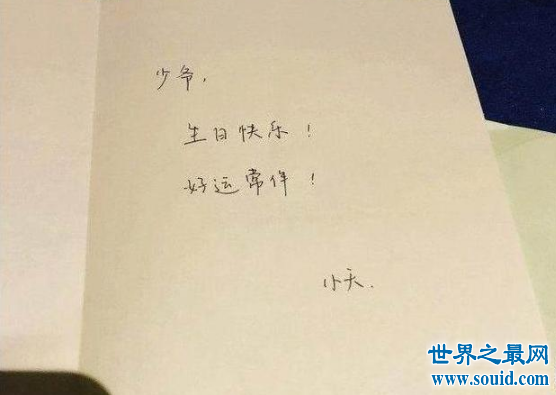 少爷，
生日快乐！
好运常伴！
小天.
世界之最网
www.souid.com